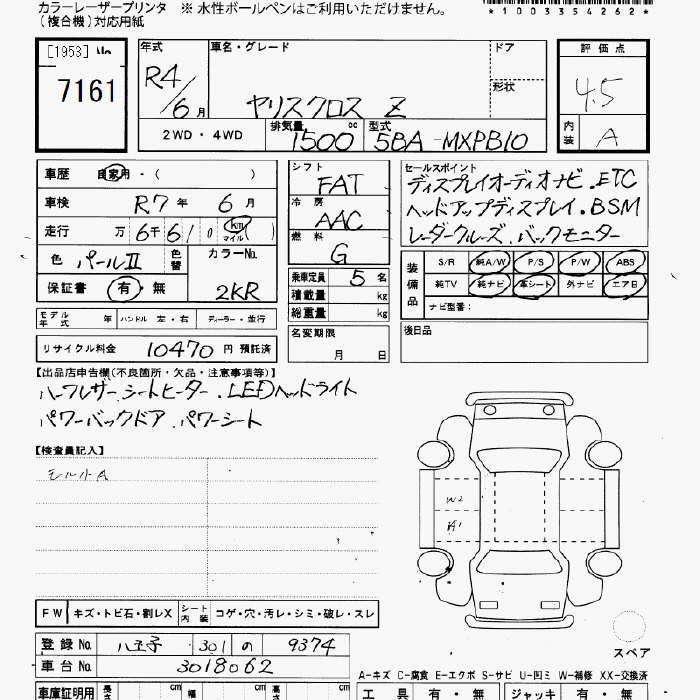 カラーレーザープリンタ ※ 水性ボールペンはご利用いただけません。
(複合機)対応用紙
*1003354262*
[1953] No
7161
年式
R4/6月
車名・グレード
ヤリスクロス Z
ドア
形状
2WD・4WD
排気量 1500 cc
型式 5BA-MXPB10
評価点
4.5
内装 A
車歴 自家用・( )
車検 R7年 6月
走行 万6千610 km マイル
色 パールⅡ 色替
カラーNo. 2KR
保証書 有・無
シフト FAT
冷房 AAC
燃料 G
乗車定員 5 名
積載量 kg
総重量 kg
セールスポイント
ディスプレイオーディオナビ.ETC
ヘッドアップディスプレイ.BSM
レーダークルーズ.バックモニター
装備品
S/R 純A/W P/S P/W ABS
純TV 純ナビ 革シート 外ナビ エアB
ナビ型番:
モデル年式 年 ハンドル 左・右 ディーラー・並行
名変期限 月 日
後日品
リサイクル料金 10470 円 預託済
【出品店申告欄(不良箇所・欠品・注意事項等)】
ハーフレザーシートヒーター.LEDヘッドライト
パワーバックドア.パワーシート
【検査員記入】
W2
A1
FW キズ・トビ石・割レX シート内装 コゲ・穴・汚レ・シミ・破レ・スレ
登録No. 八王子 301 の 9374
車台No. 3018062
スペア
A-キズ C-腐食 E-エクボ S-サビ U-凹ミ W-補修 XX-交換済
車庫証明用 長さ cm 幅 cm 高さ cm
工具 有・無 ジャッキ 有・無